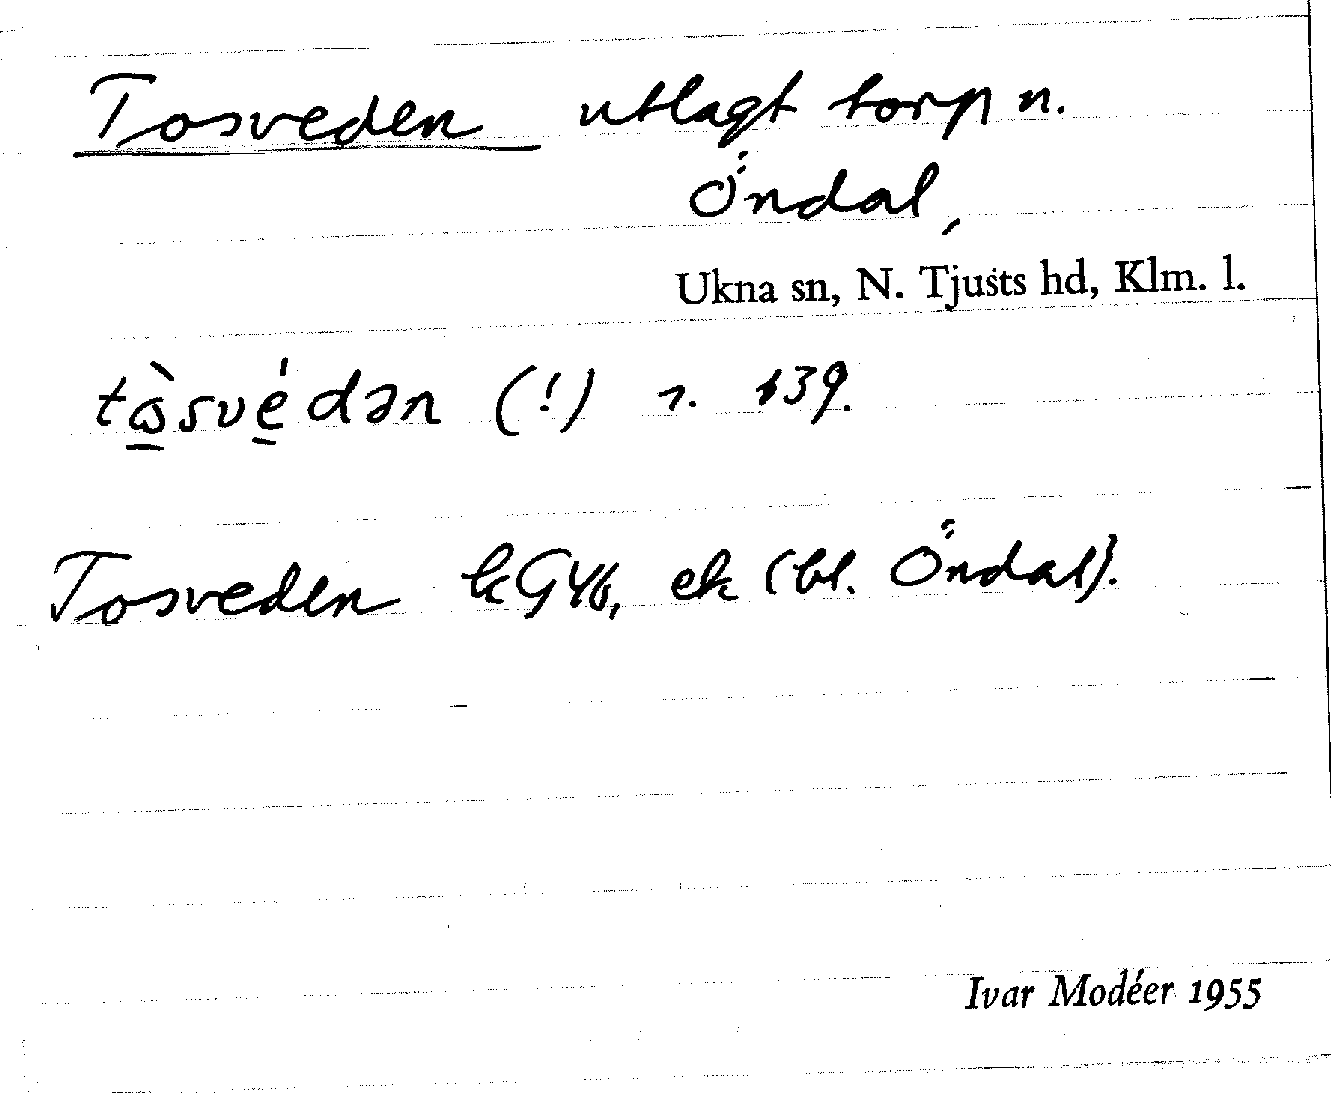 Tosveden utlagt torp n.
Öndal,
Ukna sn, N. Tjusts hd, Klm. l.
tὼ̲sve̲̍dən (!) r. 139.
Tosveden kG46, ek (bl. Öndal).
Ivar Modéer 1955